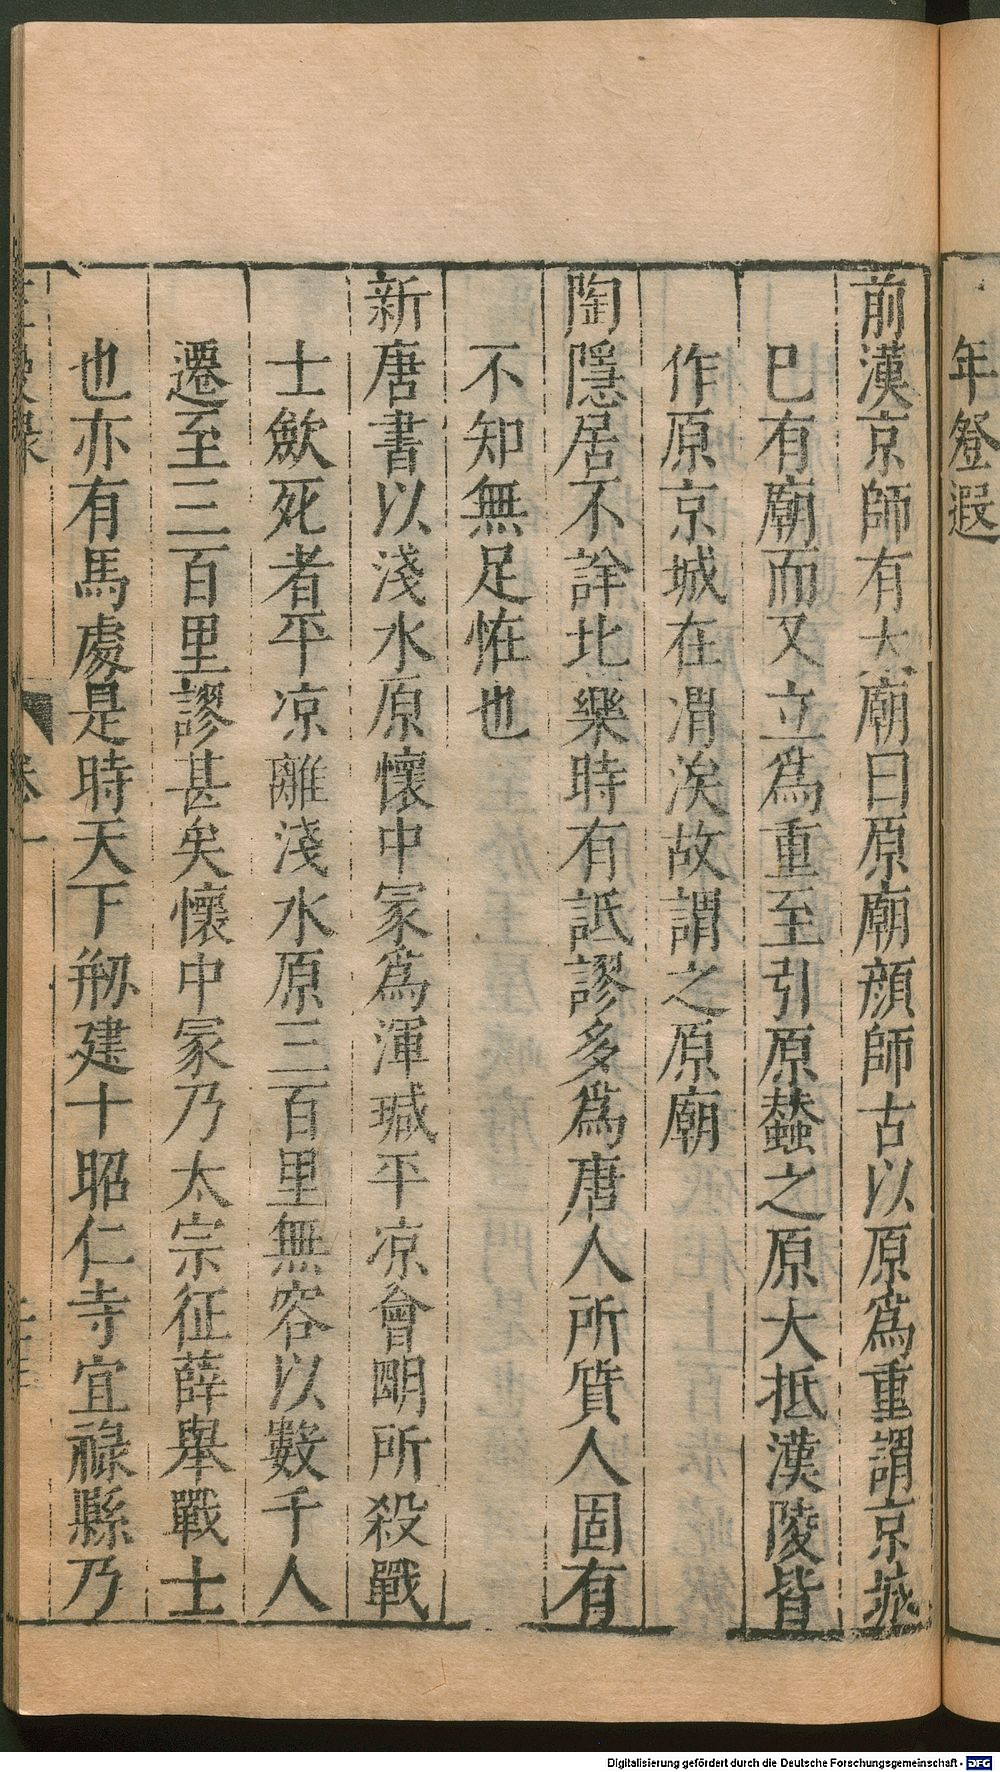 年登遐
前漢京師有太廟曰原廟顔師古以原爲重謂京城
已有廟而又立爲重至引原蠶之原大抵漢陵皆
作原京城在渭涘故謂之原廟
陶隱居不詳北藥時有詆謬多爲唐人所質人固有
不知無足恠也
新唐書以淺水原懷中冡爲渾瑊平凉會明所殺戰
士斂死者平凉離淺水原三百里無容以數千人
遷至三百里謬甚矣懷中冡乃太宗征薛舉戰士
也亦有馬處是時天下剏建十昭仁寺宜祿縣乃
卷一
Digitalisierung gefördert durch die Deutsche Forschungsgemeinschaft - DFG